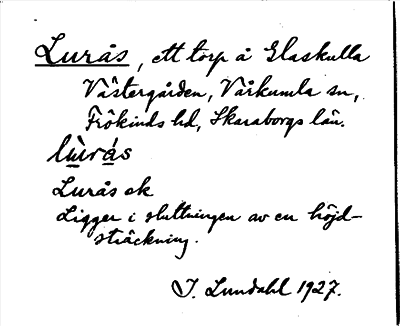 Lurås, ett torp å Glaskulla
Västergården, Vårkumla sn,
Frökinds hd, Skaraborgs län.
lùrás
Lurås ek
Ligger i sluttningen av en höjd-
sträckning.
I. Lundahl 1927.